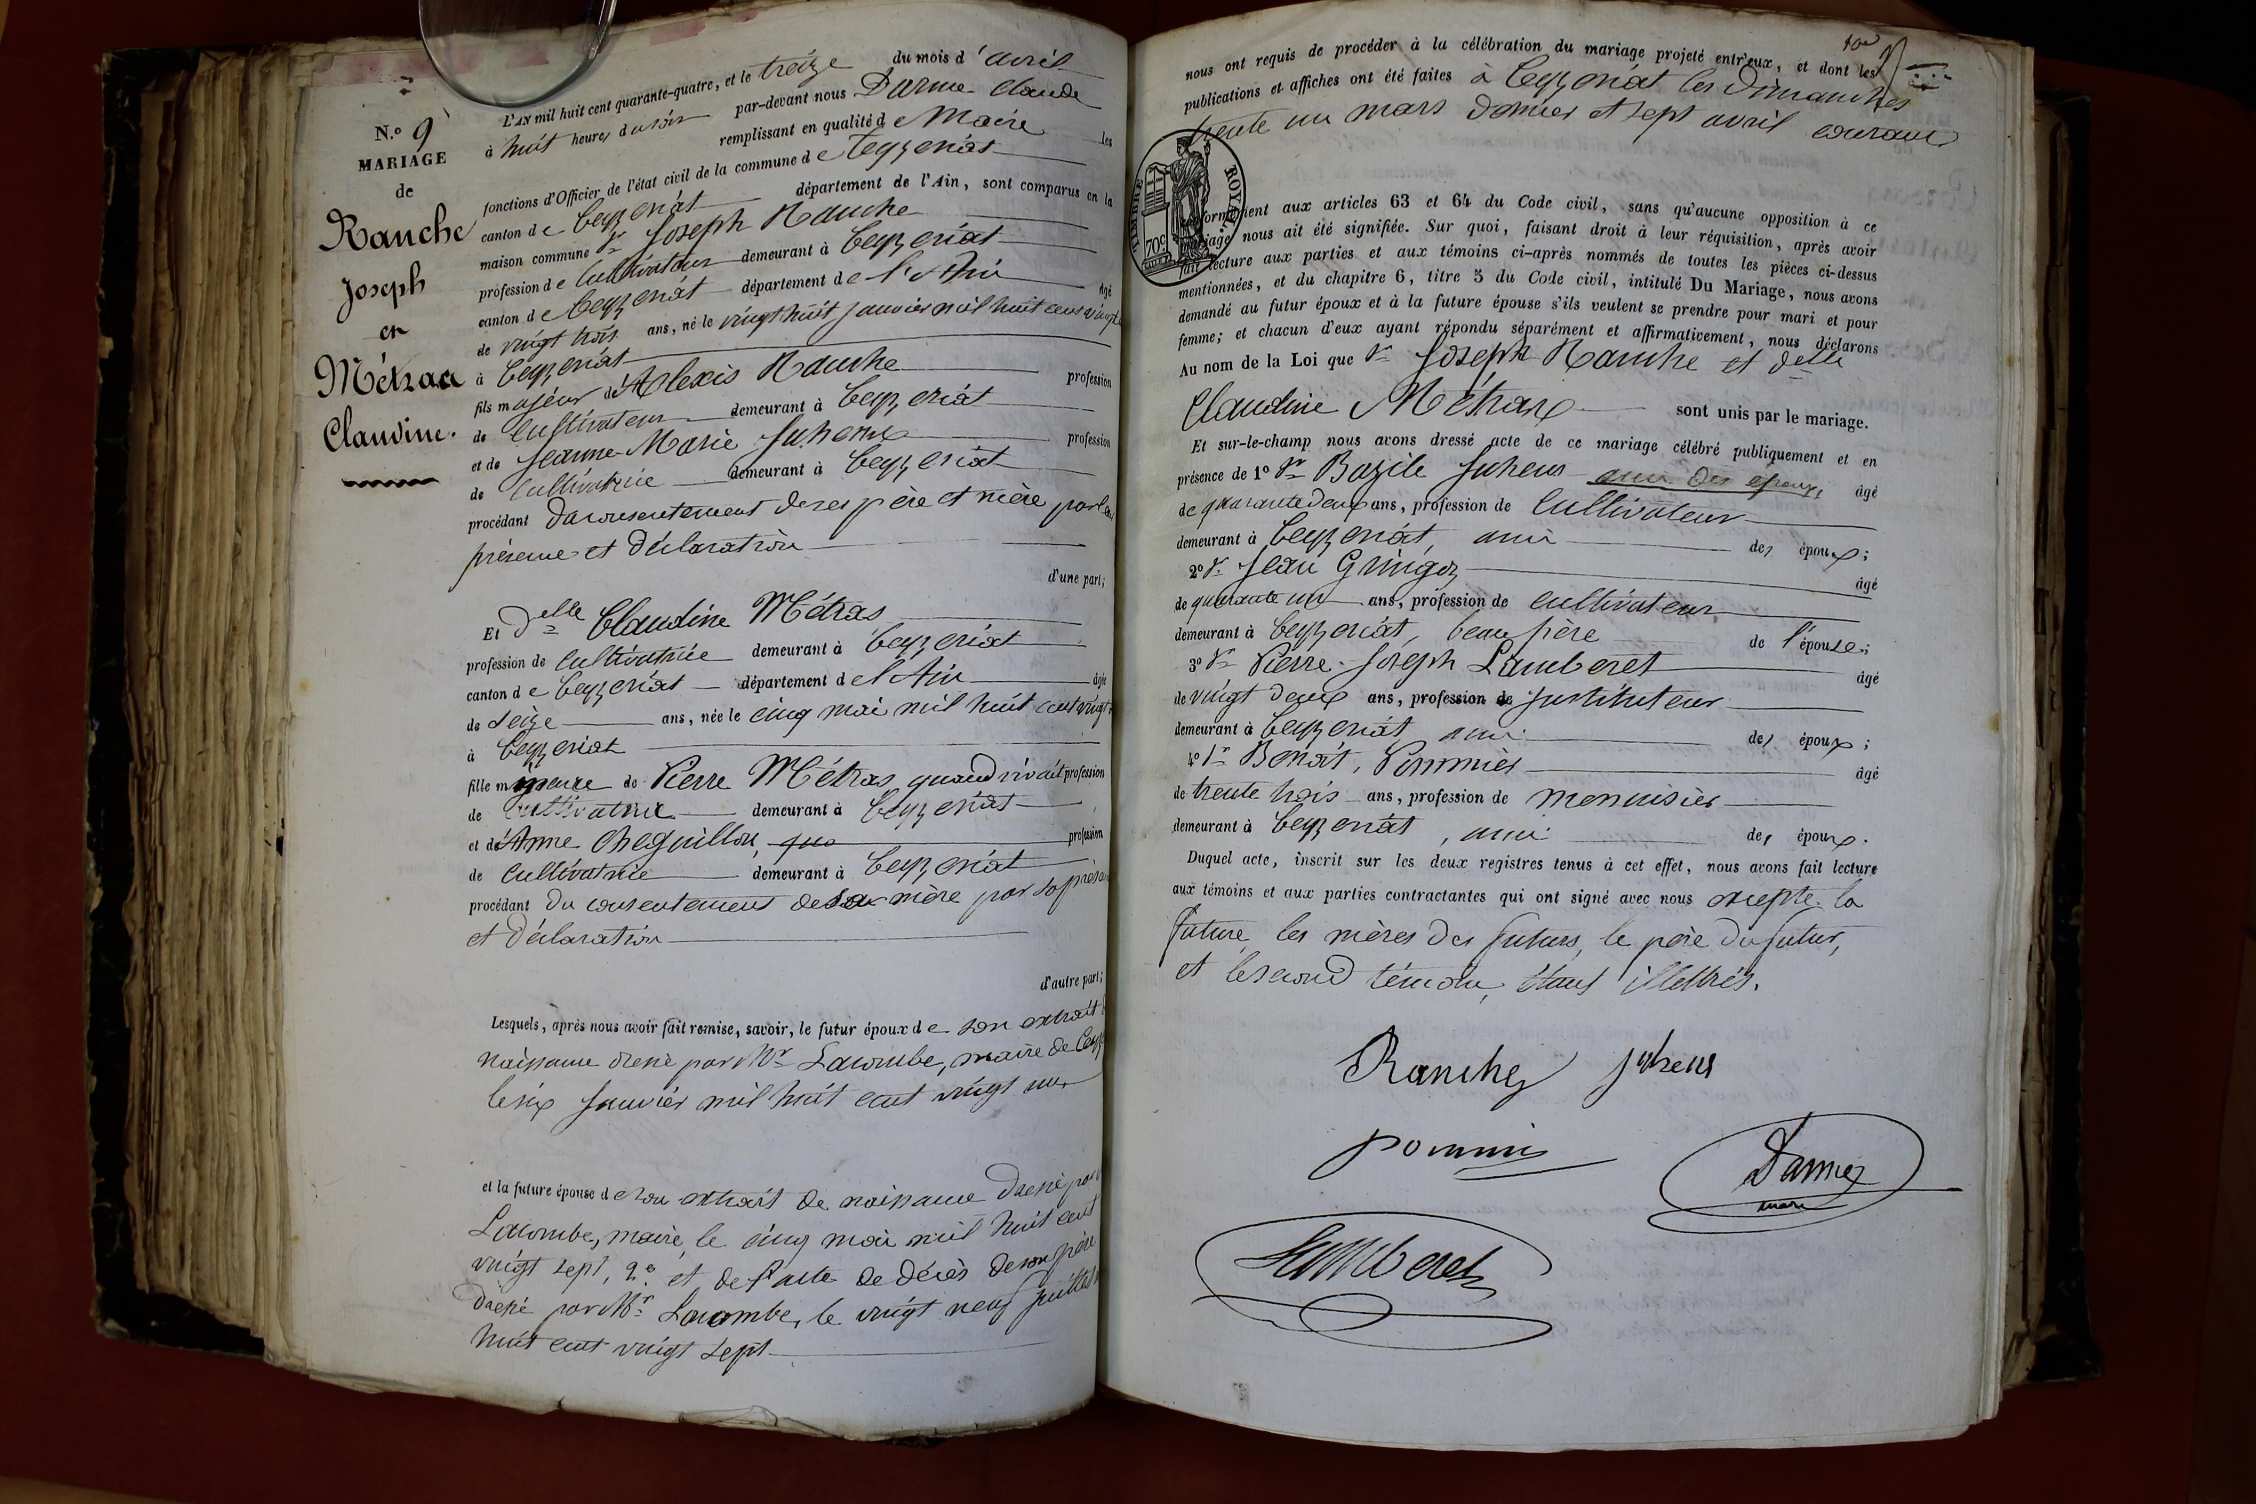 N.o 9
MARIAGE
de
Ranche
Joseph
et
Métras
Claudine.
L'AN mil huit cent quarante-quatre, et le treize du mois d'avril
à huit heures du soir par-devant nous Darme Claude
remplissant en qualité de Maire les
fonctions d'Officier de l'état civil de la commune de Ceyzériat
canton de Ceyzériat département de l'Ain, sont comparus en la
maison commune Sr Joseph Ranche
profession de Cultivateur demeurant à Ceyzériat
canton de Ceyzériat département de l'Ain âgé
de vingt trois ans, né le vingt huit janvier mil huit cent vingt
à Ceyzériat
fils majeur d'Alexis Ranche profession
de Cultivateur demeurant à Ceyzériat
et de Jeanne-Marie profession
de Cultivatrice demeurant à Ceyzériat
procédant du consentement de ses père et mère par leur
présence et déclaration
d'une part;
Et Delle Claudine Métras
profession de Cultivatrice demeurant à Ceyzériat
canton de Ceyzériat département de l'Ain âgée
de seize ans, née le cinq mai mil huit cent vingt
à Ceyzériat
fille mineure de Pierre Métras, quand vivait profession
de demeurant à Ceyzériat
et d'Anne Cheguillon, profession
de Cultivatrice demeurant à Ceyzériat
procédant du consentement de sa mère par sa présence
et déclaration
d'autre part;
Lesquels, après nous avoir fait remise, savoir, le futur époux de son extrait
naissance dressé par Mr Lacombe, maire de Ceyz
le six janvier mil huit cent vingt un
et la future épouse de son extrait de naissance dressé par
Lacombe, maire, le cinq mai mil huit cent
vingt sept, 2o et de l'acte de décès de son père
dressé par Mr Lacombe, le vingt neuf juillet
huit cent vingt sept
10e
nous ont requis de procéder à la célébration du mariage projeté entr'eux, et dont les
publications et affiches ont été faites à Ceyzériat les Dimanches
trente un mars dernier et sept avril courant
conformément aux articles 63 et 64 du Code civil, sans qu'aucune opposition à ce
TIMBRE ROYAL
70c
mariage nous ait été signifiée. Sur quoi, faisant droit à leur réquisition, après avoir
fait lecture aux parties et aux témoins ci-après nommés de toutes les pièces ci-dessus
mentionnées, et du chapitre 6, titre 5 du Code civil, intitulé Du Mariage, nous avons
demandé au futur époux et à la future épouse s'ils veulent se prendre pour mari et pour
femme; et chacun d'eux ayant répondu séparément et affirmativement, nous déclarons
Au nom de la Loi que Sr Joseph Ranche et delle
Claudine Métras sont unis par le mariage.
Et sur-le-champ nous avons dressé acte de ce mariage célébré publiquement et en
présence de 1o Sr Bazile Juhens ami des époux, âgé
de quarante deux ans, profession de Cultivateur
demeurant à Ceyzériat, ami des époux;
2o Sr Jean Gringoz âgé
de quarante un ans, profession de cultivateur
demeurant à Ceyzériat, beau père de l'épouse;
3o Sr Pierre-Joseph Lamberet âgé
de vingt deux ans, profession de Instituteur
demeurant à Ceyzériat ami des époux;
4o Sr Benoît, Pommier âgé
de trente trois ans, profession de menuisier
demeurant à Ceyzériat, ami des époux.
Duquel acte, inscrit sur les deux registres tenus à cet effet, nous avons fait lecture
aux témoins et aux parties contractantes qui ont signé avec nous excepté la
future, les mères des futurs, le père du futur,
et le second témoin, étant illettrés.
Ranche Juhens
Pommier
Darme
maire
Lamberet